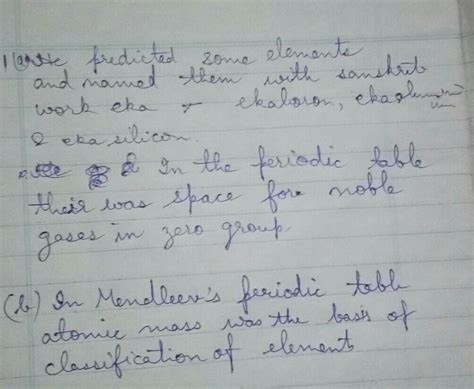 1(a) He predicted some elements
and named them with sanskrit
work eka - ekaboron, ekaalumini
um
& eka silicon.
2 In the periodic table
their was space for noble
gases in zero group.
(b) In Mendleev's periodic table
atomic mass was the basis of
classification of element